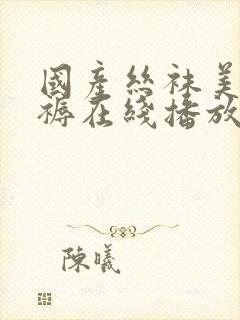 國產絲襪美
褥在綫播放
陳曦